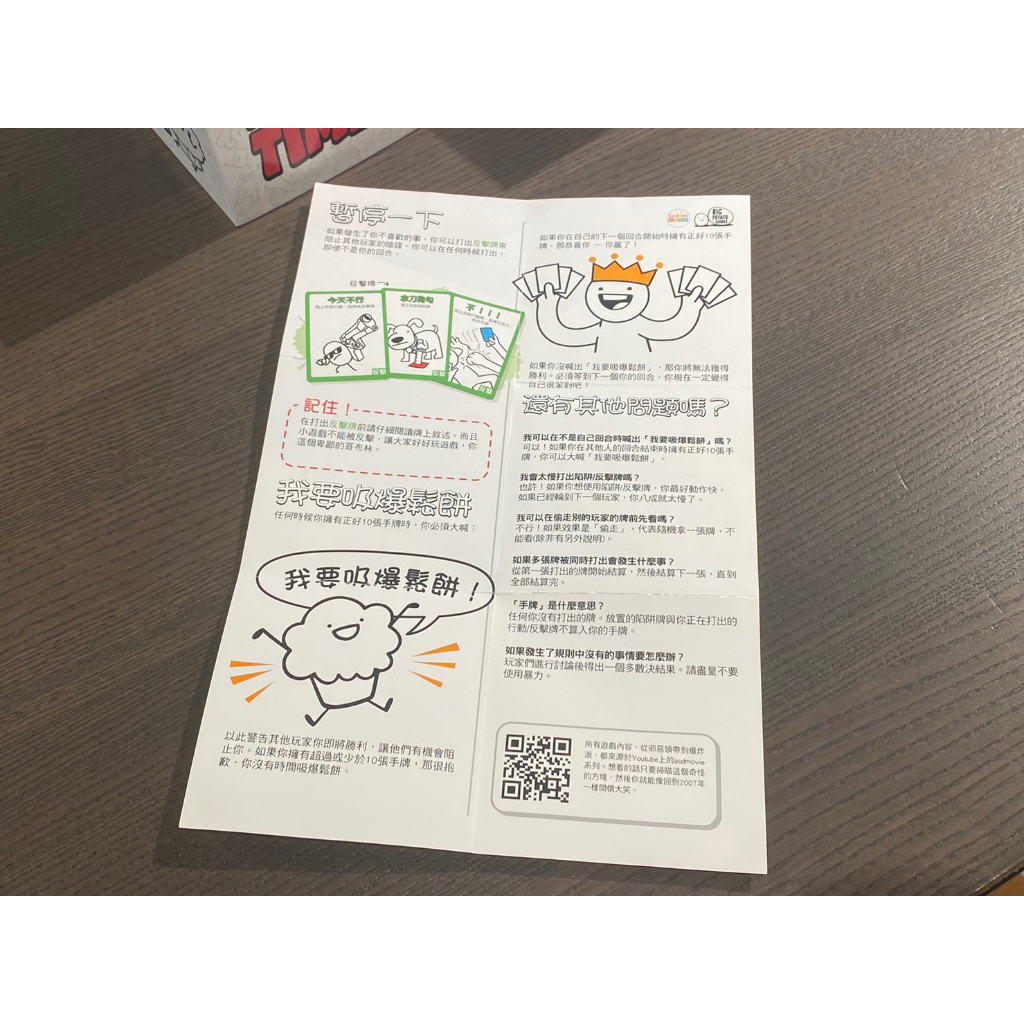 TIM
暫停一下
如果發生了你不喜歡的事，你可以打出反擊牌來
阻止其他玩家的陰謀。你可以在任何時候打出，
即使不是你的回合。
反擊牌
今天不行
拿刀狗勾
不！！！
反擊
反擊
反擊
記住！
在打出反擊牌前請仔細閱讀牌上敘述。而且
小遊戲不能被反擊，讓大家好好玩遊戲，你
這個卑鄙的哥布林。
我要吸爆鬆餅
任何時候你擁有正好10張手牌時，你必須大喊：
我要吸爆鬆餅！
以此警告其他玩家你即將勝利，讓他們有機會阻
止你。如果你擁有超過或少於10張手牌，那很抱
歉，你沒有時間吸爆鬆餅。
BIG
POTATO
GAMES
如果你在自己的下一個回合開始時擁有正好10張手
牌，那恭喜你 — 你贏了！
如果你沒喊出「我要吸爆鬆餅」，那你將無法獲得
勝利。必須等到下一個你的回合，你現在一定覺得
自己很笨對吧？
還有其他問題嗎？
我可以在不是自己回合時喊出「我要吸爆鬆餅」嗎？
可以！如果你在其他人的回合結束時擁有正好10張手
牌，你可以大喊「我要吸爆鬆餅」。
我會太慢打出陷阱/反擊牌嗎？
也許！如果你想使用陷阱/反擊牌，你最好動作快。
如果已經輪到下一個玩家，你八成就太慢了。
我可以在偷走別的玩家的牌前先看嗎？
不行！如果效果是「偷走」，代表隨機拿一張牌，不
能看(除非有另外說明)。
如果多張牌被同時打出會發生什麼事？
從第一張打出的牌開始結算，然後結算下一張，直到
全部結算完。
「手牌」是什麼意思？
任何你沒有打出的牌。放置的陷阱牌與你正在打出的
行動/反擊牌不算入你的手牌。
如果發生了規則中沒有的事情要怎麼辦？
玩家們進行討論後得出一個多數決結果。請盡量不要
使用暴力。
所有遊戲內容，從邪惡領帶到爆炸
派，都來源於Youtube上的asdmovie
系列。想看的話只要掃瞄這個奇怪
的方塊，然後你就能像回到2007年
一樣開懷大笑。